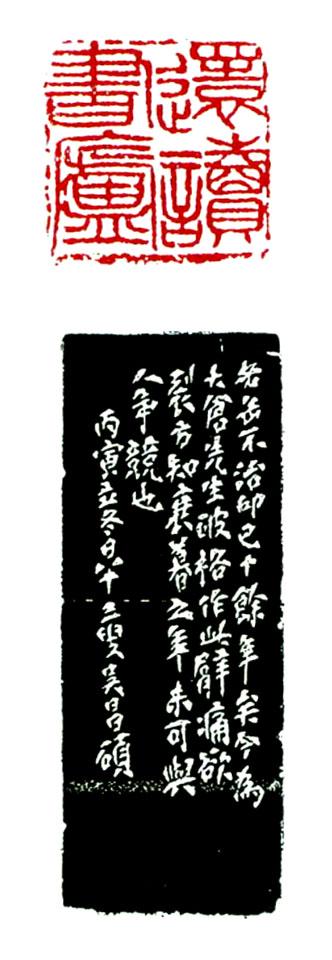 還讀
書廬
老缶不治印已十餘年矣今為
大倉先生破格作此臂痛欲
裂方知衰暮之年未可與
人争競也
丙寅立冬日八十三叟吳昌碩